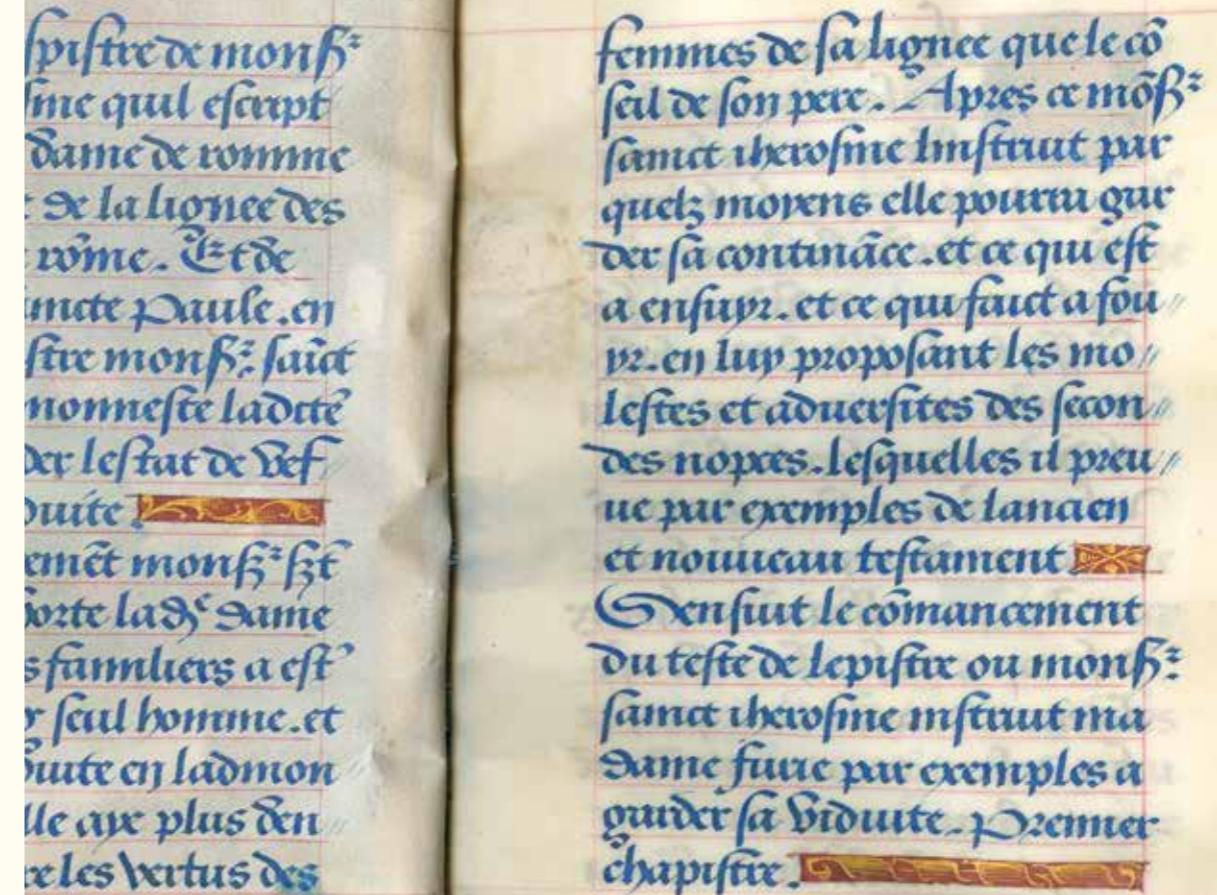 spistre de monsr
sme quil escript
dame de romme
de la lignee des
rõme. Et de
incte Paule. en
stre monsr. saĩct
monneste ladcte
der lestat de vef
duite.
emẽt monsr sct
porte lade dame
s familiers a est
seul homme. et
duite en ladmon
lle aye plus den
re les vertus des
femmes de sa lignee que le cõ
seil de son pere. Apres ce mõsr
sainct iherosme linstruit par
quelz moyens elle pourra gar
der sa continãce. et ce qui est
a ensuyr. et ce qui faict a fou
yr. en luy proposant les mo
lestes et aduersites des secon
des nopces. lesquelles il preu
ue par exemples de lancien
et nouueau testament
Sensuit le cõmancement
du teste de lepistre ou monsr
sainct iherosme instruit ma
dame furie par exemples a
garder sa viduite. Premier
chapistre.